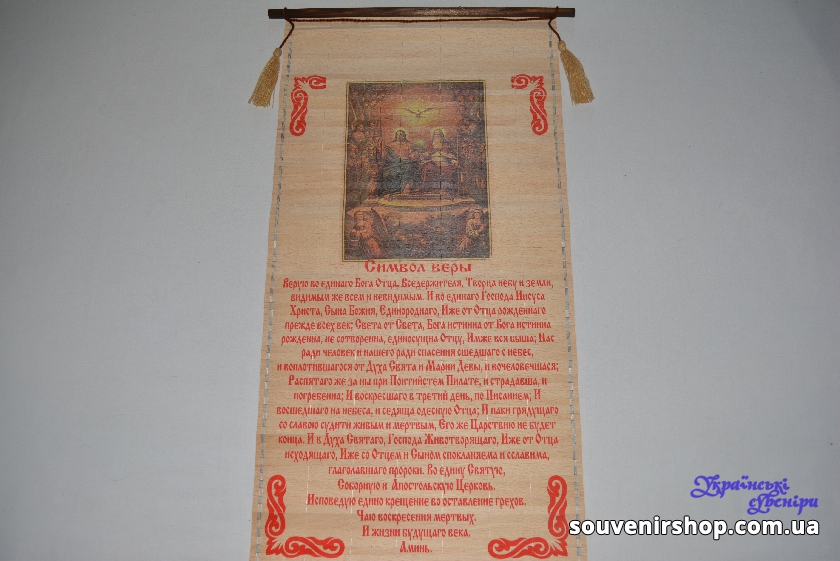 Символ веры
Верую во единаго Бога Отца, Вседержителя, Творца небу и земли,
видимым же всем и невидимым. И во единаго Господа Иисуса
Христа, Сына Божия, Единороднаго, Иже от Отца рожденнаго
прежде всех век; Света от Света, Бога истинна от Бога истинна
рожденна, не сотворенна, единосущна Отцу, Имже вся быша; Нас
ради человек и нашего ради спасения сшедшаго с небес,
и воплотившагося от Духа Свята и Марии Девы, и вочеловечшася;
Распятаго же за ны при Понтийстем Пилате, и страдавша, и
погребенна; И воскресшаго в третий день, по Писанием; И
восшедшаго на небеса, и седяща одесную Отца; И паки грядущаго
со славою судити живым и мертвым, Его же Царствию не будет
конца. И в Духа Святаго, Господа Животворящаго, Иже от Отца
исходящаго, Иже со Отцем и Сыном спокланяема и сславима,
глаголавшаго пророки. Во едину Святую,
Соборную и Апостольскую Церковь.
Исповедую едино крещение во оставление грехов.
Чаю воскресения мертвых.
И жизни будущаго века.
Аминь.
Українські
сувеніри
souvenirshop.com.ua